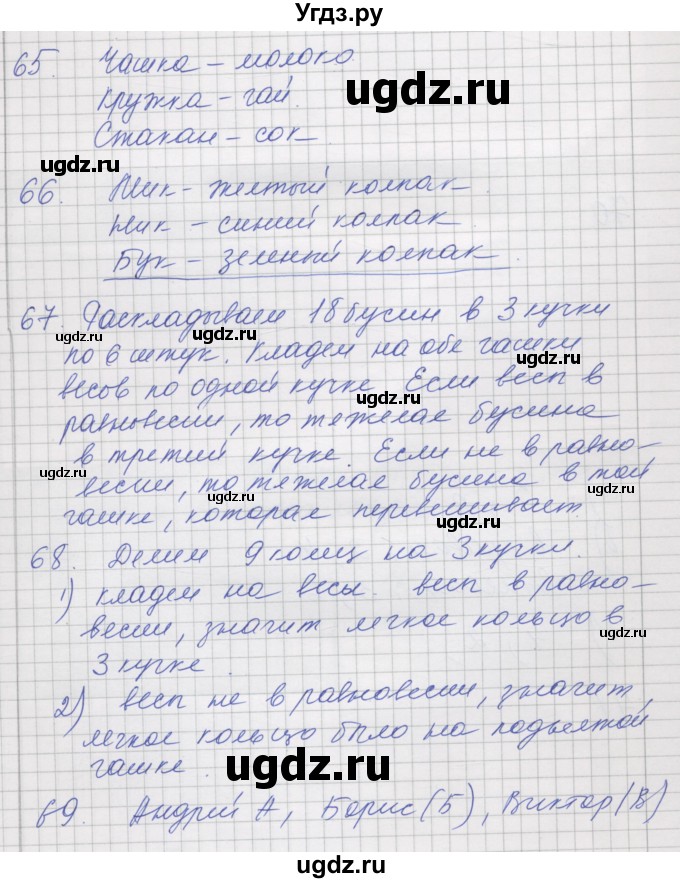 Угдз.ру
65. Чашка – молоко
ugdz.ru
Кружка – чай.
ugdz.ru
Стакан – сок
ugdz.ru
66. Шик – желтый колпак
ugdz.ru
Ник – синий колпак
Бук – зеленый колпак.
ugdz.ru
67. Раскладываем 18 бусин в 3 кучки
ugdz.ru
по 6 штук. Кладем на обе чашки
весов по одной кучке. Если весы в
ugdz.ru
равновесии, то тяжелая бусина
в третий кучке. Если не в равно-
ugdz.ru
весии, то тяжелая бусина в той
ugdz.ru
чашке, которая перевешивает.
ugdz.ru
68. Делим 9 колец на 3 кучки.
1) кладем на весы. весы в равно-
весии, значит легкое кольцо в
ugdz.ru
3 кучке.
2) весы не в равновесии, значит,
легкое кольцо было на поднятой
чашке.
ugdz.ru
69. Андрей А, Борис (Б), Виктор (В)
ugdz.ru